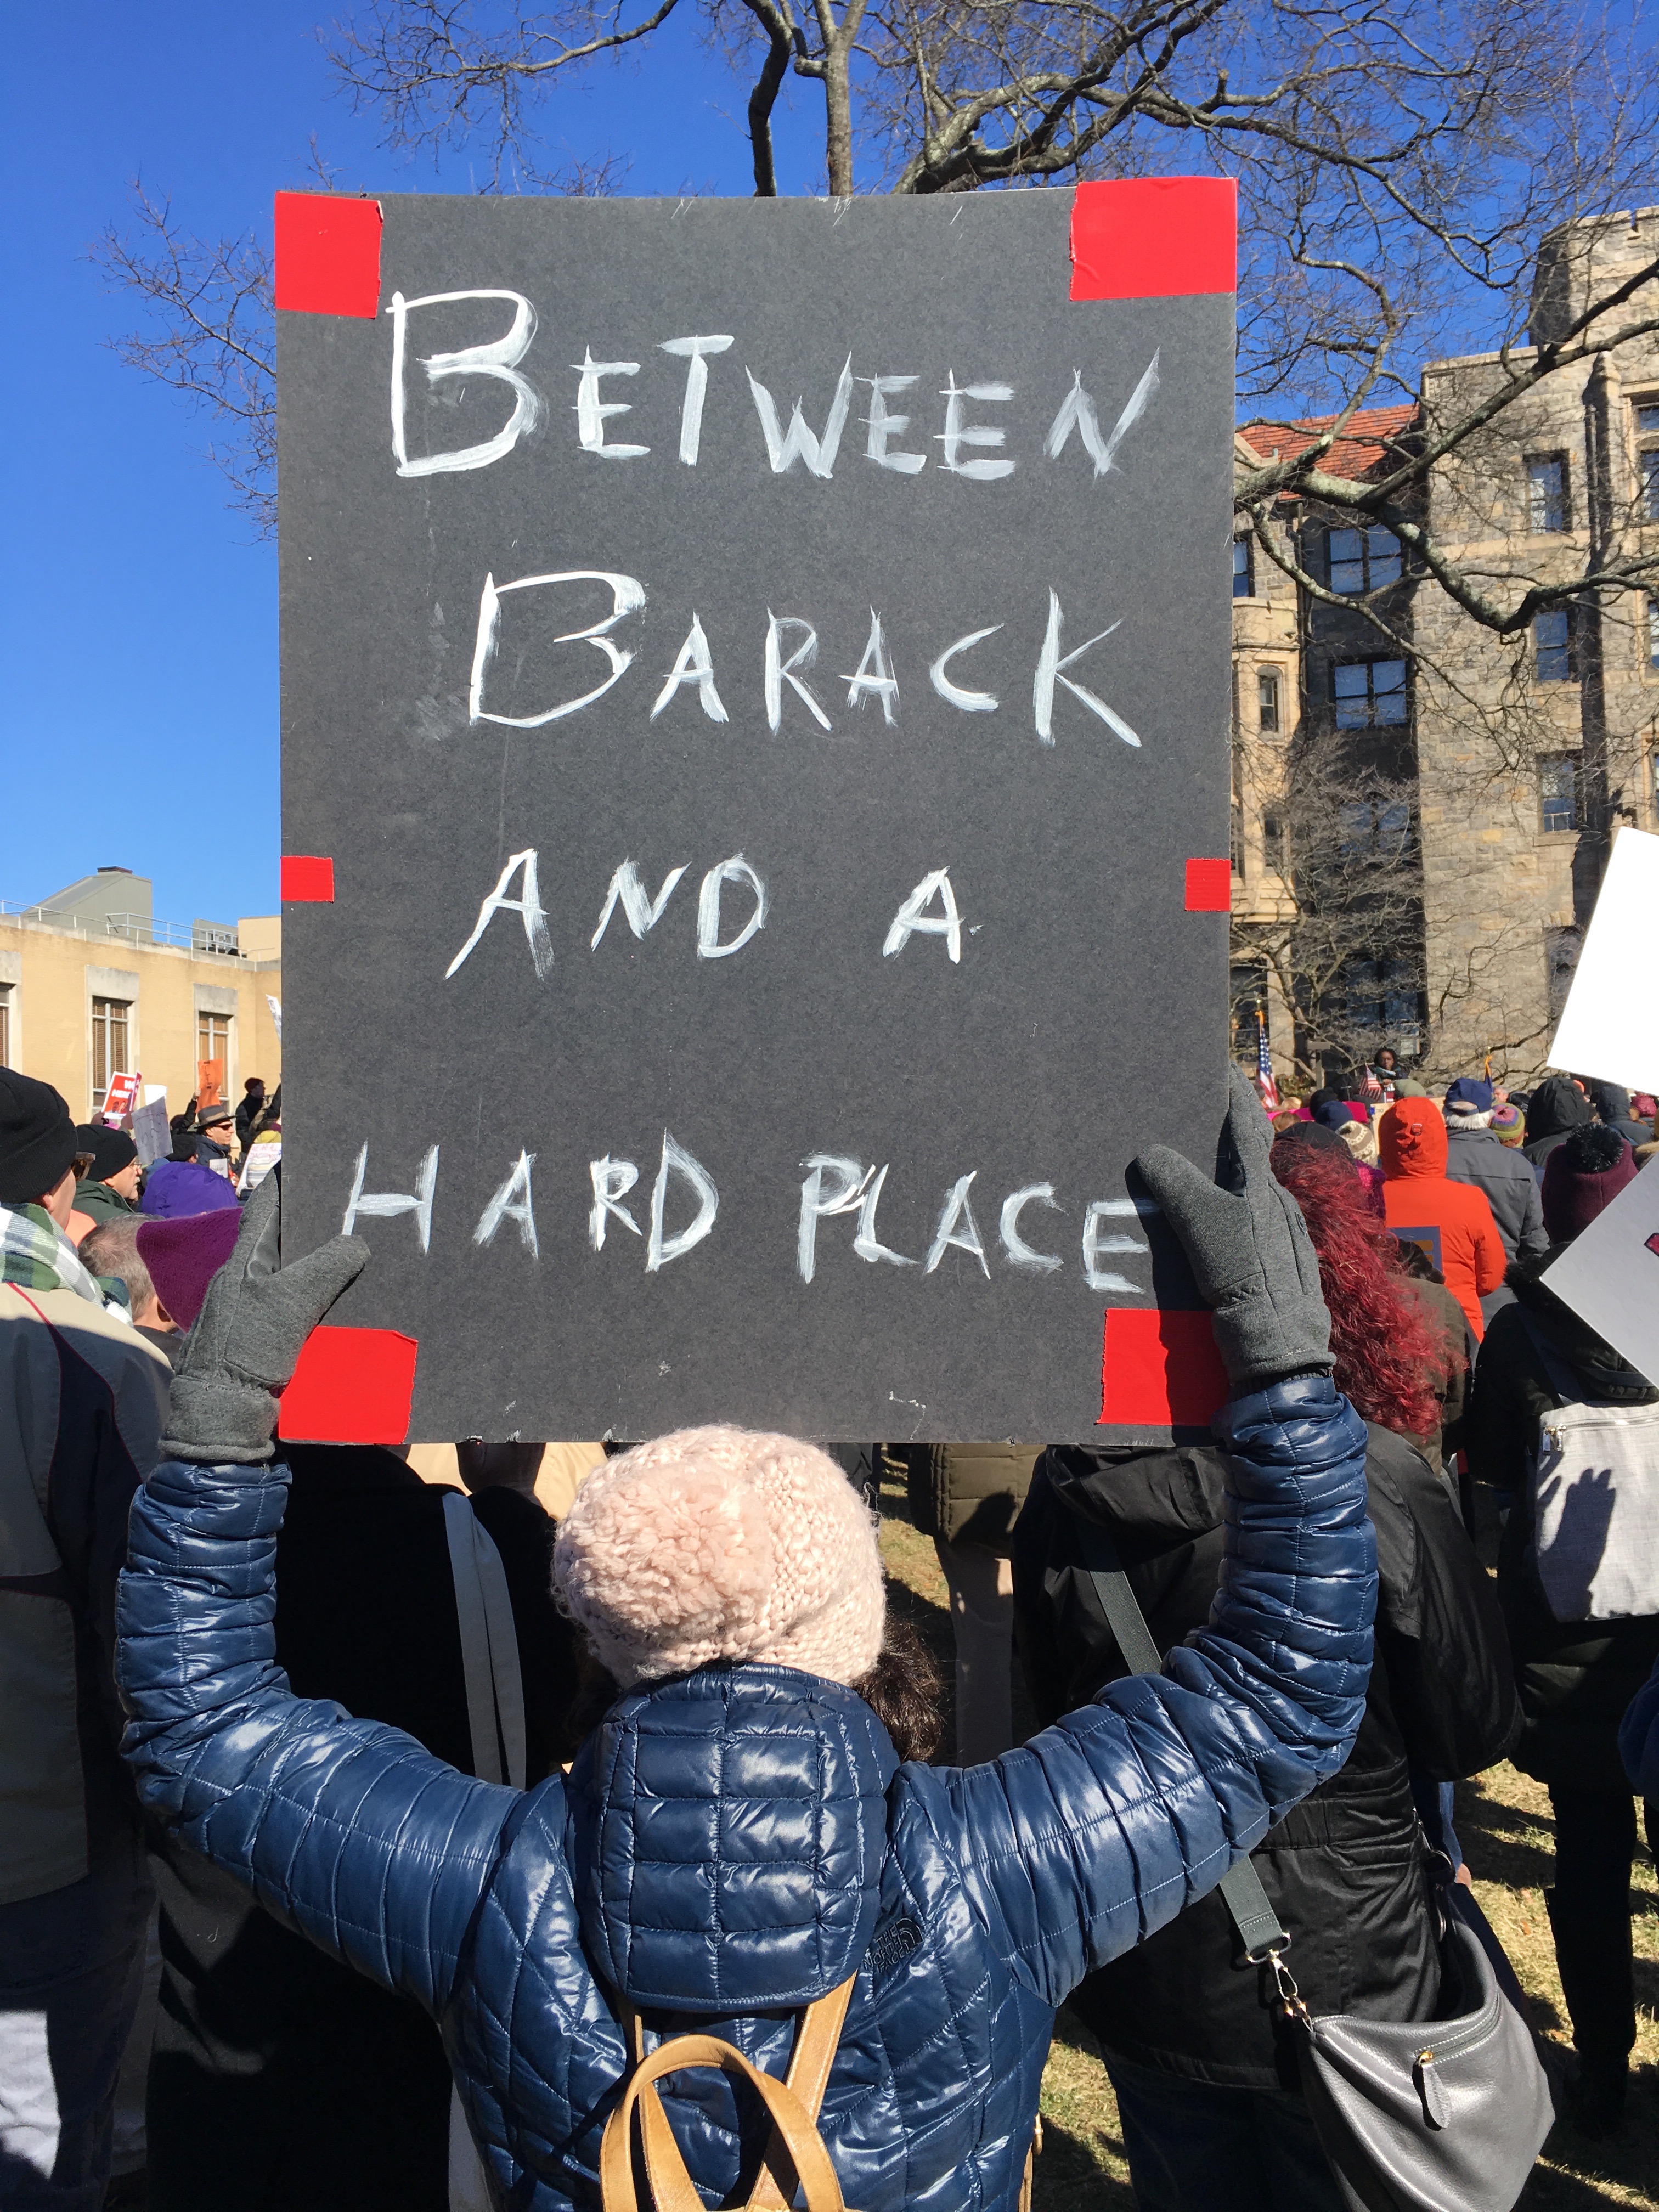 BETWEEN
BARACK
AND A
HARD PLACE
THE
NORTH
FACE